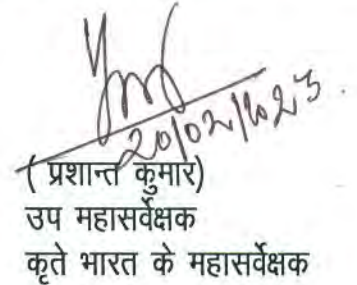 20/02/2023.
( प्रशान्त कुमार)
उप महासर्वेक्षक
कृते भारत के महासर्वेक्षक